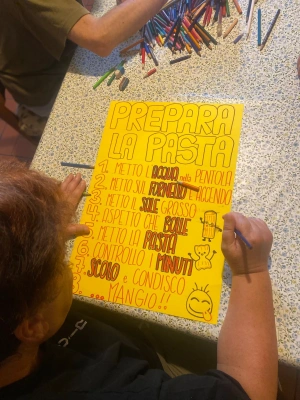 PREPARA
LA PASTA
1. METTO L'ACQUA nella PENTOLA
2. METTO SUL FORNELLO E ACCENDO
3. METTO IL SALE GROSSO
4. ASPETTO CHE BOLLE
5. METTO LA PASTA
6. CONTROLLO I MINUTI
SCOLO e CONDISCO
...MANGIO!!